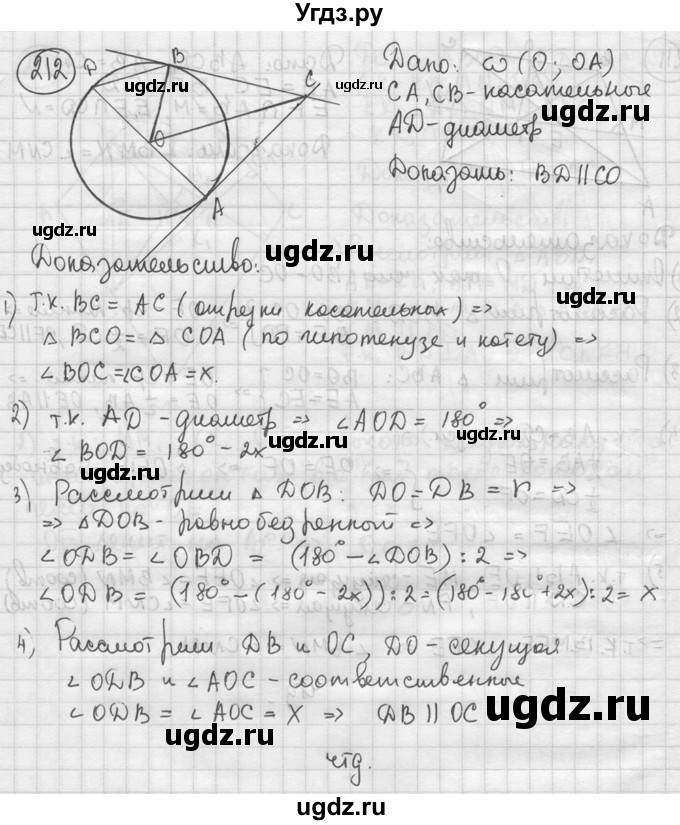 Угдз.ру
212
D
B
C
O
A
Дано: ω (O; OA)
CA, CB - касательные
AD - диаметр
Доказать: BD || CO
ugdz.ru
ugdz.ru
ugdz.ru
ugdz.ru
ugdz.ru
Доказательство:
1) т.к. BC = AC (отрезки касательных) =>
△ BCO = △ COA (по гипотенузе и катету) =>
∠BOC = ∠COA = x.
2) т.к. AD - диаметр => ∠AOD = 180° =>
∠ BOD = 180° - 2x
ugdz.ru
ugdz.ru
ugdz.ru
3) Рассмотрим △ DOB: DO = DB = r =>
=> △DOB - равнобедренный =>
∠ODB = ∠OBD = (180° - ∠DOB) : 2 =>
∠ODB = (180° - (180° - 2x)) : 2 = (180° - 180° + 2x) : 2 = x
ugdz.ru
ugdz.ru
4) Рассмотрим DB и OC, DO - секущая
∠ ODB и ∠AOC - соответственные
∠ ODB = ∠ AOC = x => DB || OC
ugdz.ru
ugdz.ru
ugdz.ru
чтд.
ugdz.ru